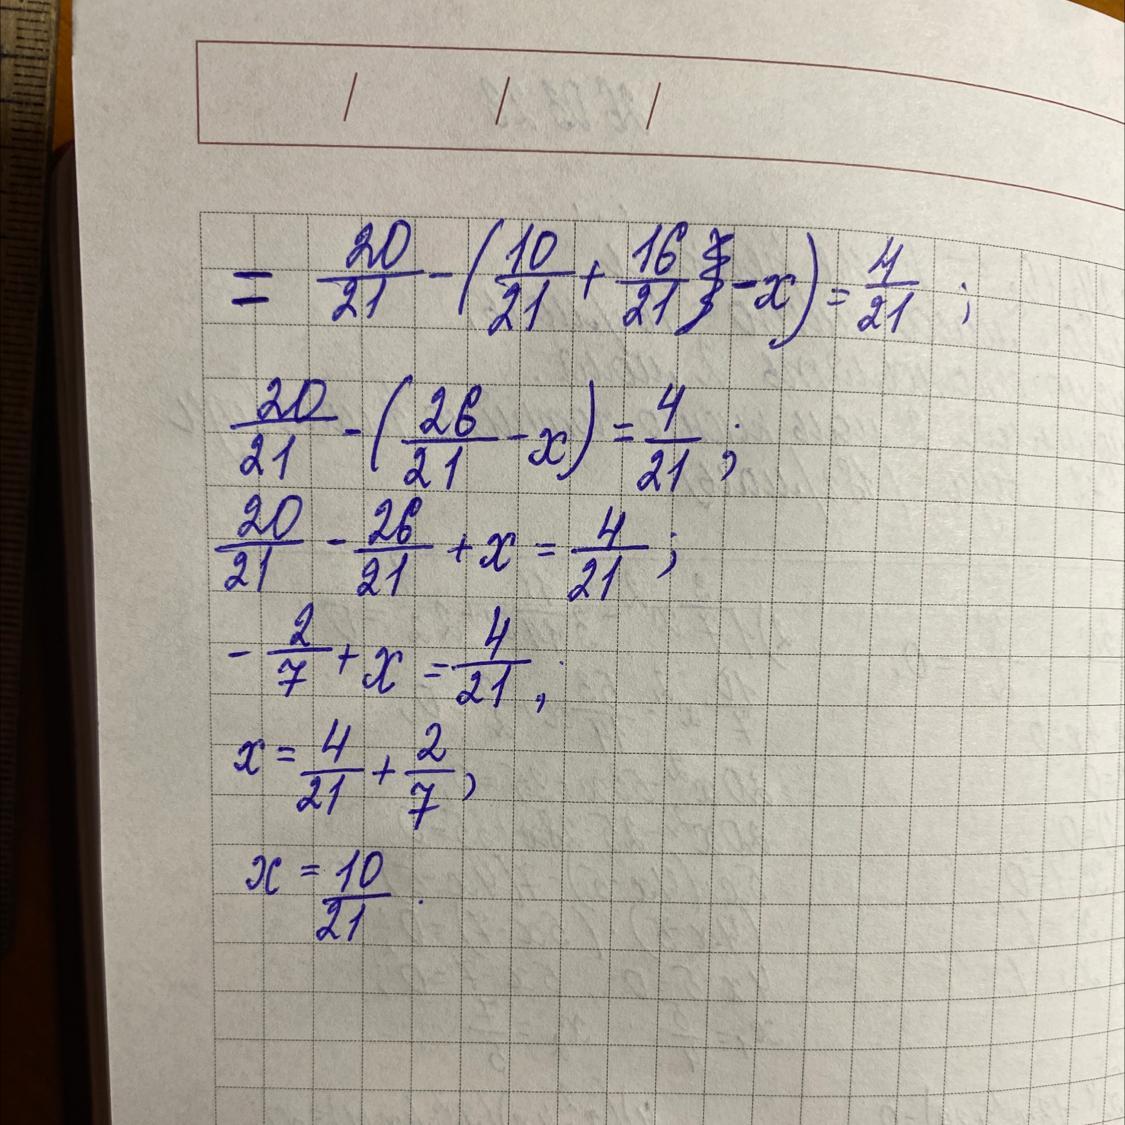 = 20/21 - (10/21 + 16/21 - x) = 4/21 ;
20/21 - (26/21 - x) = 4/21 ;
20/21 - 26/21 + x = 4/21 ;
- 2/7 + x = 4/21 ;
x = 4/21 + 2/7 ;
x = 10/21 .